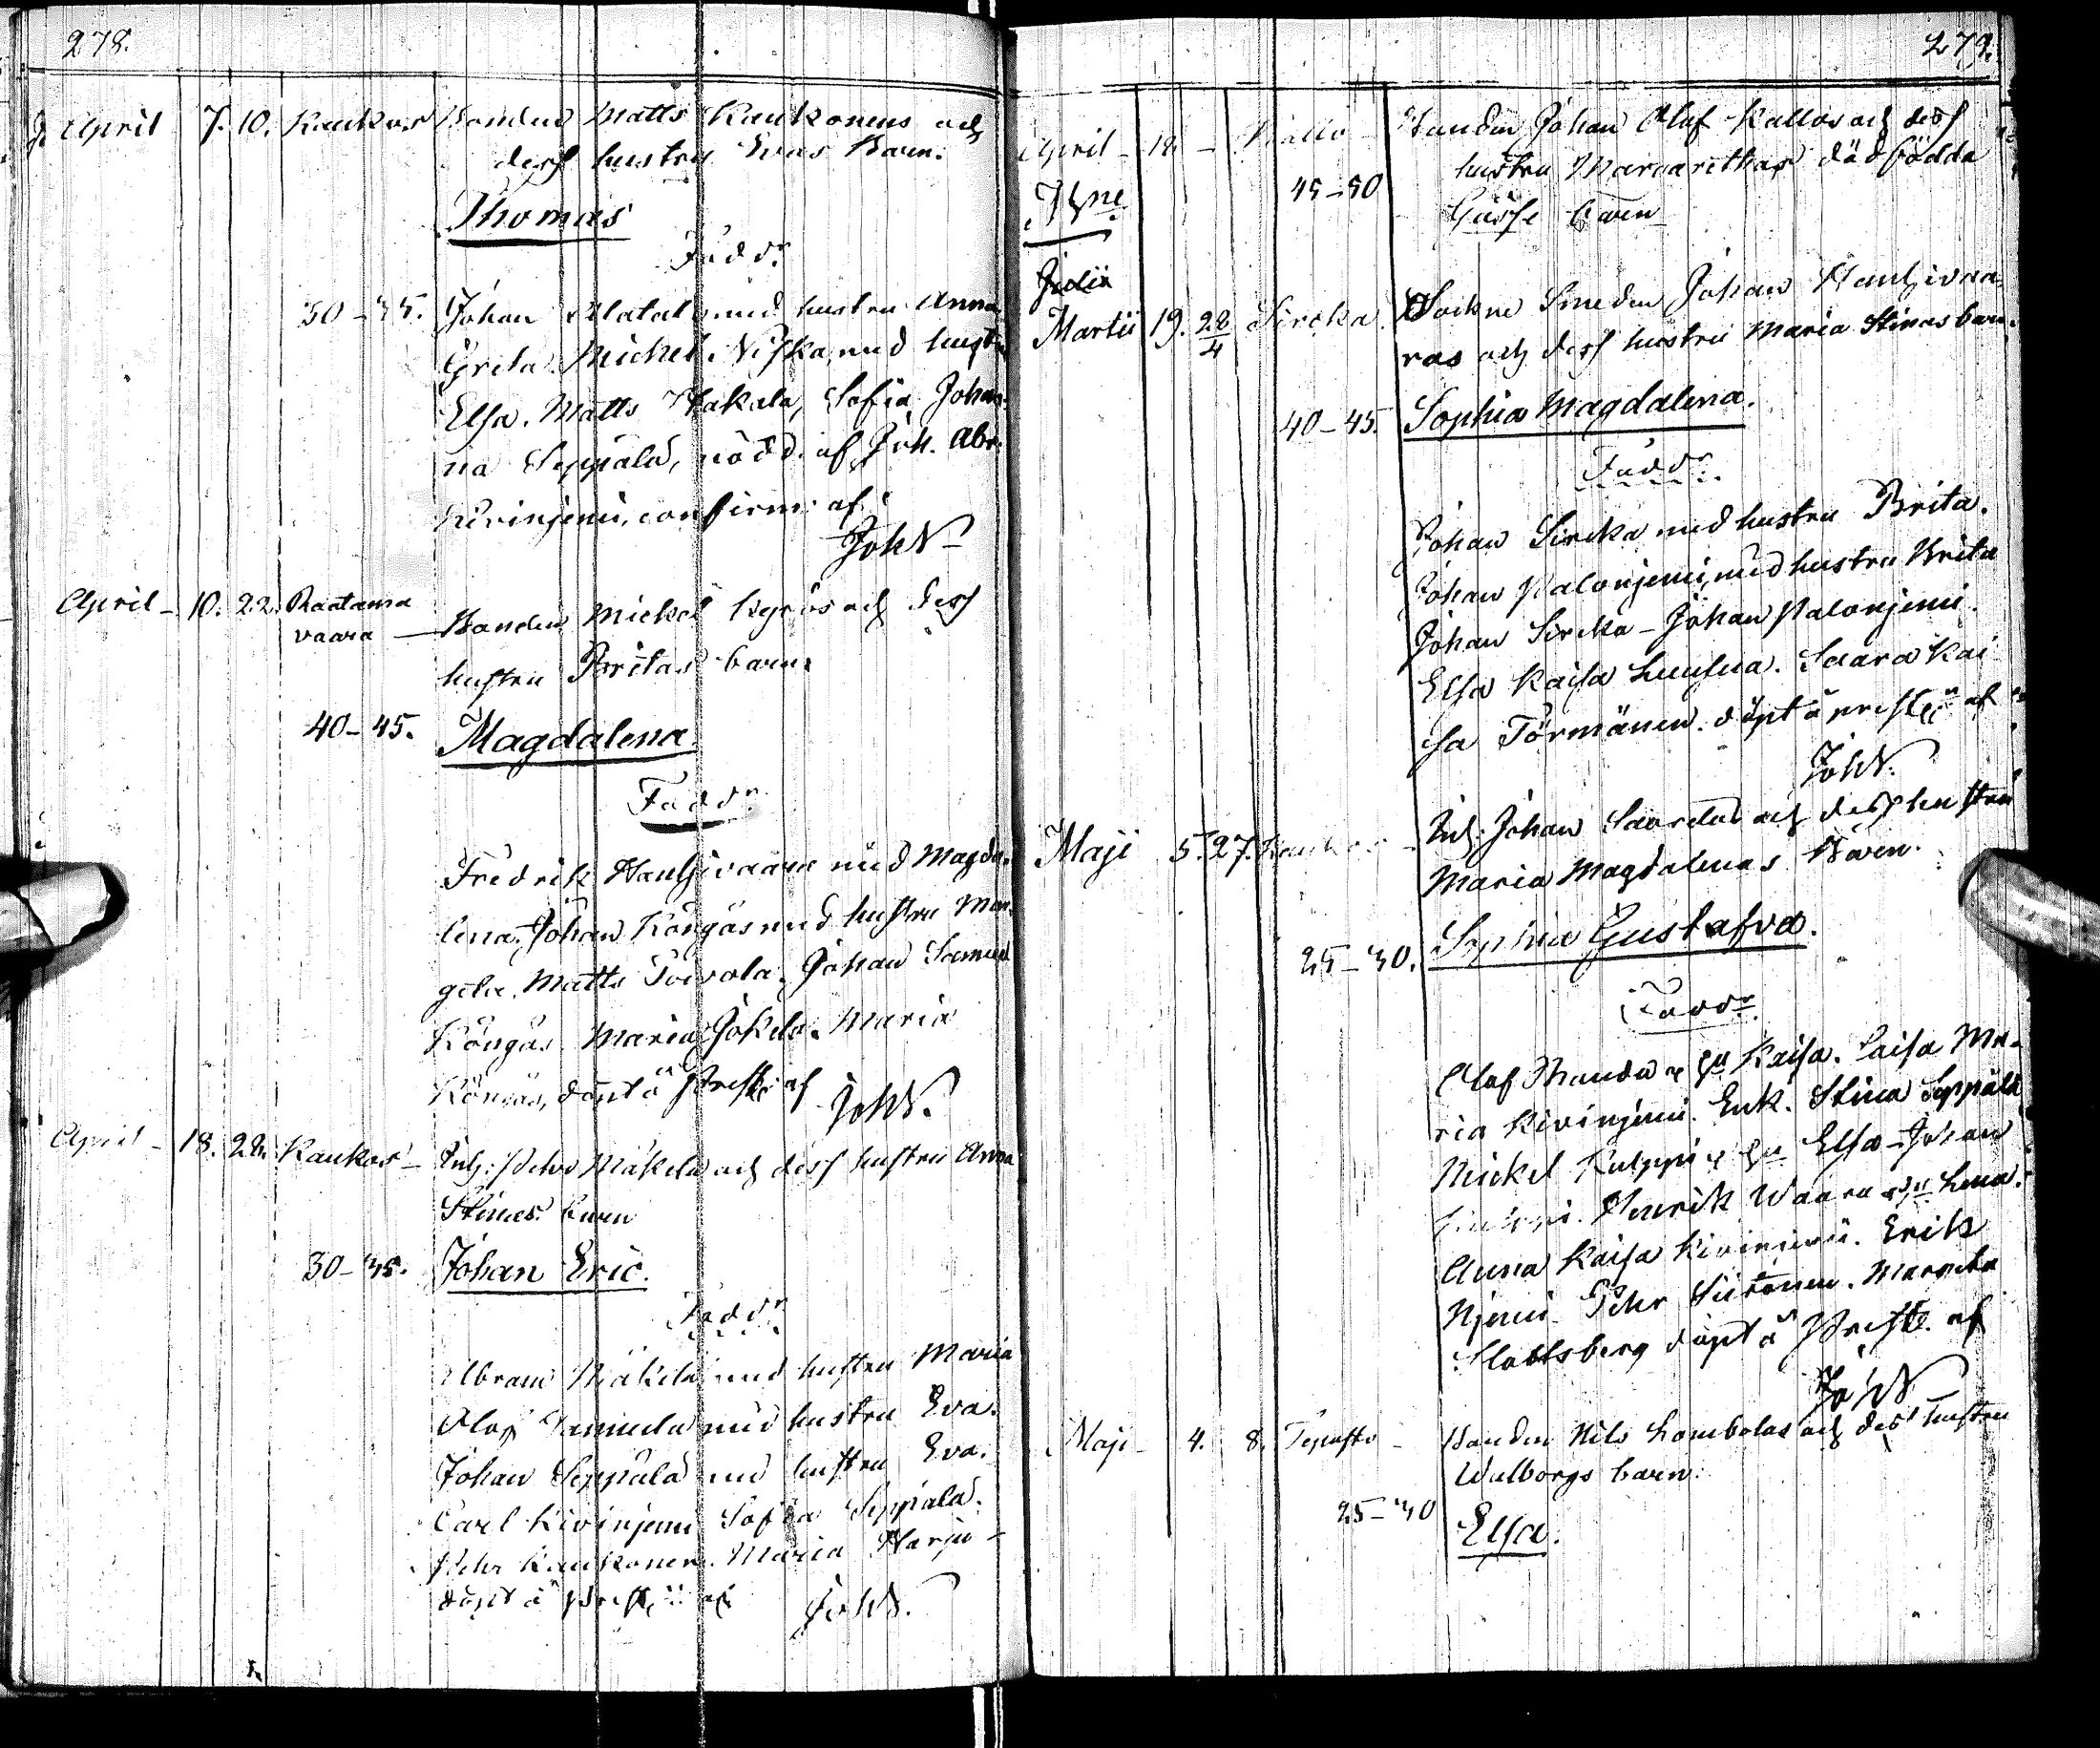 278.
April 7. 10. Kaukos Bonden Matts Kaukonens och
dess hustru Evas Barn.
Thomas
Faddr
30-35. Johan Alatalo med hustru Anna
Greta. Michel Niska med hustru
Elsa. Matts Hakala, Sofia Johan-
na Seppälä, nödd. af Joh. Abr.
Kivinjemi, confirm. af
JohW
April - 10. 22. Raatama
vaara - Bonden Mickel Kyrös och dess
hustru Britas barn
40-45. Magdalena
Faddr
Fredrik Hanhivaara med Magda-
lena. Johan Köngäs med hustru Mar-
geta. Matts Toivola. Johan Samuel
Köngäs. Maria Jokela. Maria
Köngäs, döpt å Prest. af
JohW.
April - 18. 22. Kaukos - Inh: Pehr Mäkelä och dess hustru Anna
Stinas barn
30-35. Johan Eric.
Faddr
Abram Mäkelä med hustru Maria
Olof med hustru Eva.
Johan Seppälä med hustru Eva.
Carl Kivinjemi Sofia Seppälä.
Pehr Kaukonen. Maria Harju -
döpt å Prest. af JohW.
279.
April - 18 - Kallo - Bonden Johan Olof Kallos och dess
hustru Margarethas dödfödda
45-50 Gosse barn
Martii 19. 22/4 Sircka. Sockne Smeden Johan Hanhivaa-
ras och dess hustru Maria Stinas barn.
40-45. Sophia Magdalena.
Faddr
Johan Sircka med hustru Brita.
Johan Palonjemi, med hustru Brita
Johan Sircka - Johan Palonjemi.
Elsa Kaisa Luusua. Saara Kai
sa Törmänen. döpt å prest. af
JohW.
Maji 5. 27. Kaukos - Inh: Johan Saarelas och dess hustru
Maria Magdalenas Barn.
25-30. Sophia Gustafva.
Faddr
Olof Kaisa. Caisa Ma-
ria Kivinjemi. Enk. Stina Seppälä
Mickel Kulppi Elsa - Johan
Henrik Waara Lena.
Anna Kaisa Kivinjemi. Erik
Njemi. Pehr Siitonen. Margeta
döpt å Prest. af
JohW
Maji - 4. 8. Tepasto - Bonden Nils Lombolas och dess hustru
Walborgs barn.
25-30 Elsa.